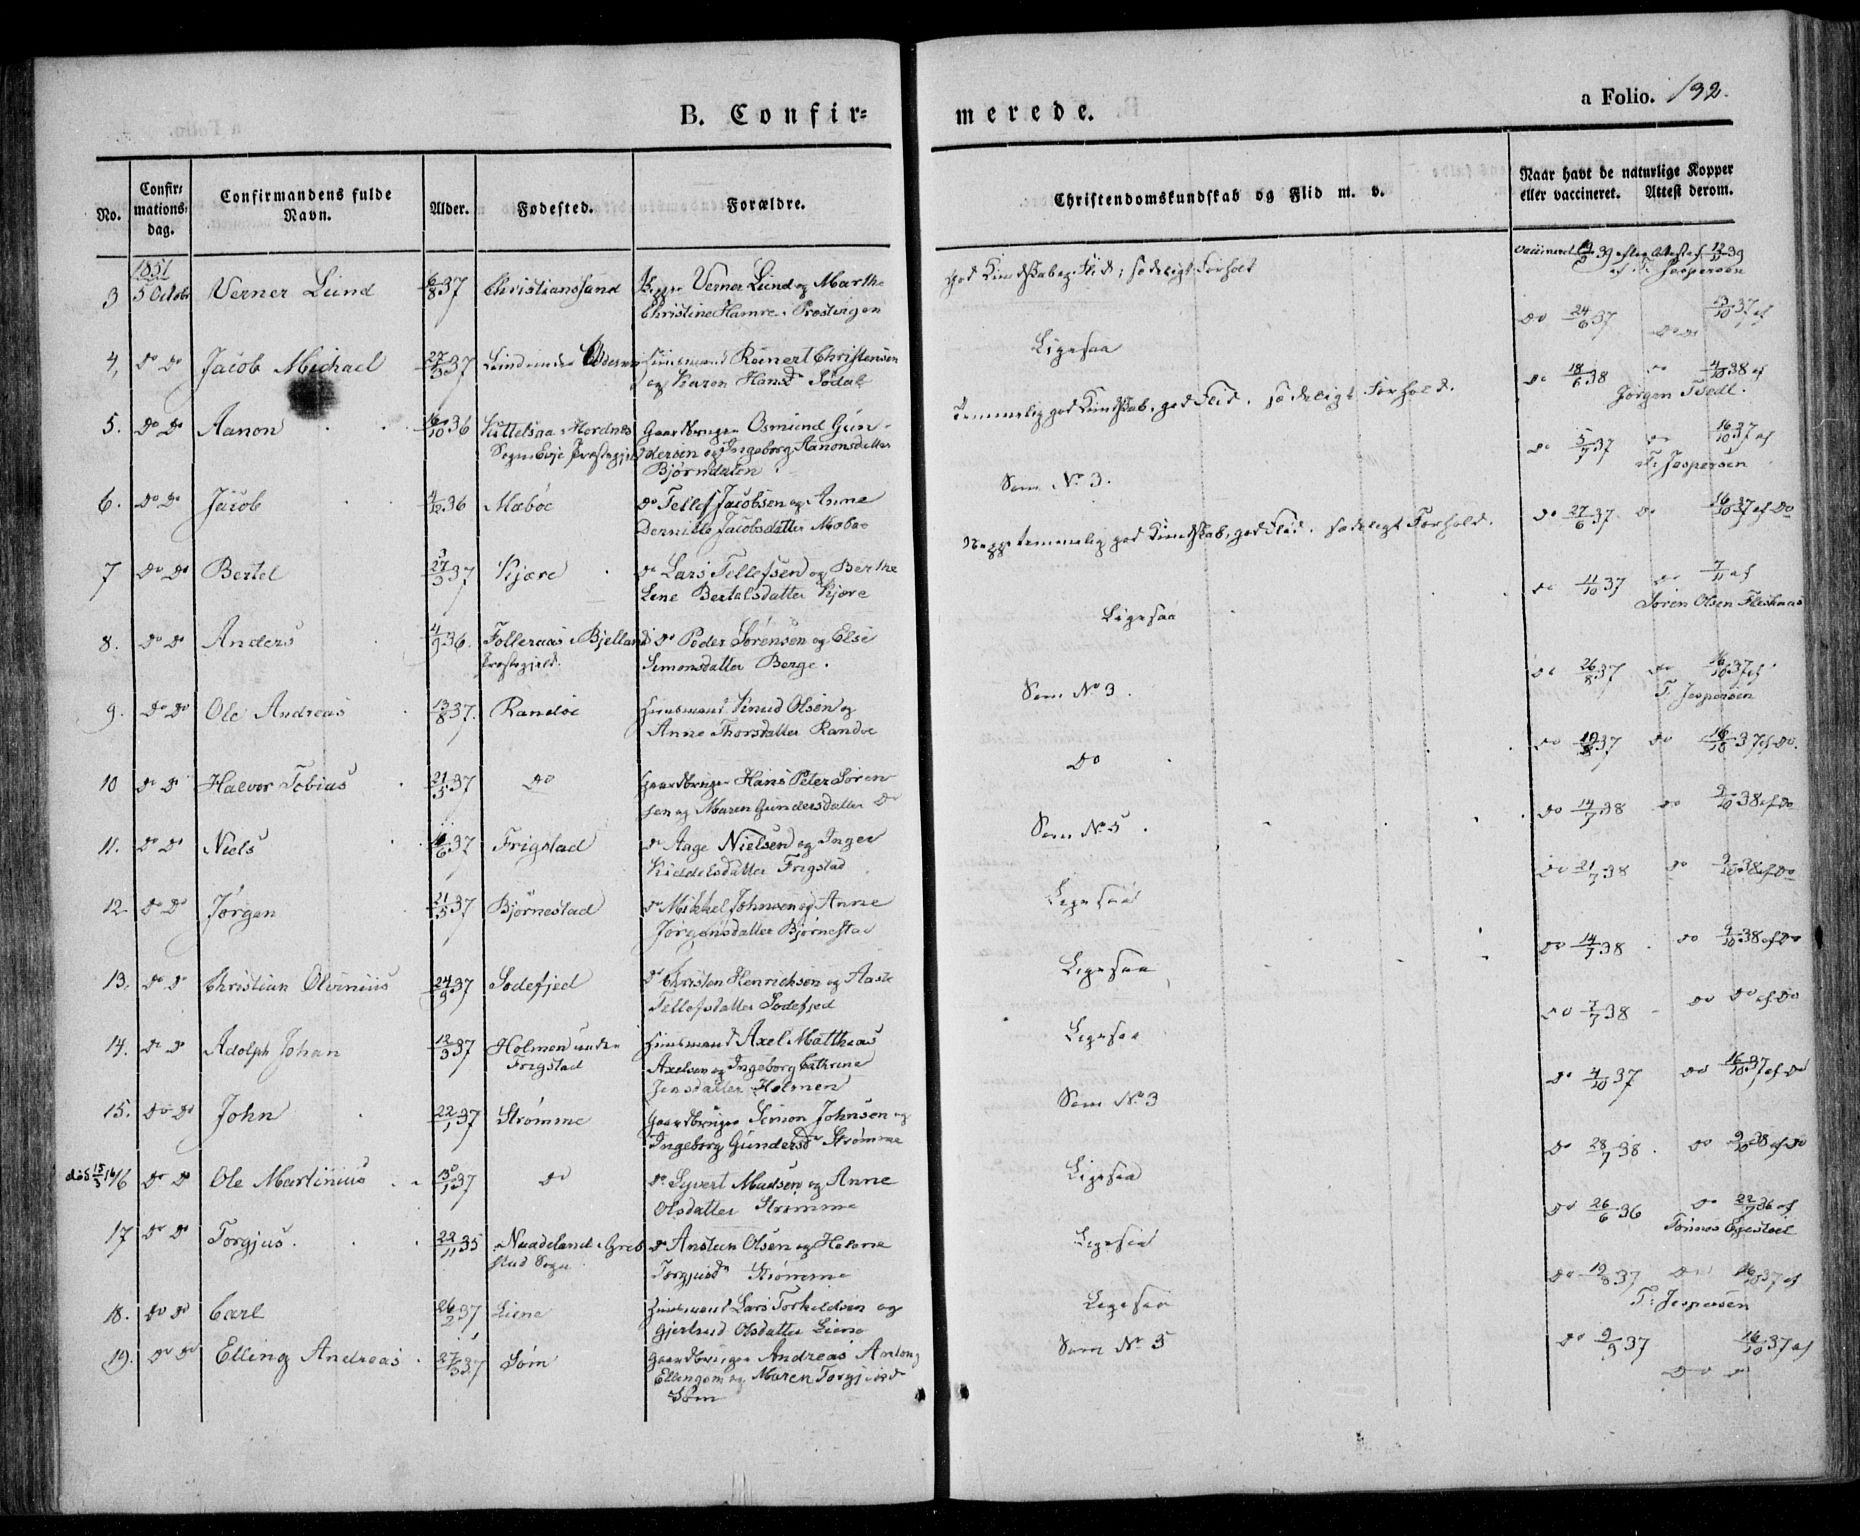 B. Confir=
merede.
a Folio. 192.
No.
Confir=
mations=
dag.
Confirmandens fulde
Navn.
Alder.
Fødested.
Forældre.
Christendomskundskab og Flid m. v.
Naar havt de naturlige Kopper
eller vaccineret. Attest derom.
1851
3 5 Octobr Verner Lund 6/8 37 Christianssand Verner Lund og Marthe
Christine Hamre
god Kundskab og Flid; sædeligt Forhold
T. Jespersen
4, Do Do Jacob Michael 27/3 37 Huusmand Reinert Christensen
og Karen Hansd Sødal
Ligesaa
Do 24/6 37 13/10 37 af
Do
5. Do Do Aanon 16/10 36 Gaardbruger Osmund Gun-
dersen og Ingeborg Aanonsdatter
Bjørndalen
temmelig god Kundskab, god Flid. sædeligt Forhold.
Do 18/6 38 Do 4/10 38 af
Jørgen Tvedt.
6. Do Do Jacob 4/12 36 Mæbøe Do Tellef Jacobsen og Anne
Jacobsdatter Mæbøe
Som No 3.
Do 5/7 37 Do 16/10 37 af
T. Jespersen
7 Do Do Bertel 27/3 37 Kjære Do Lars Tellefsen og Berthe
Lene Bertelsdatter Kjære
Neppe temmelig god Kundskab, god Flid. sædeligt Forhold.
Do 27/6 37. Do 16/10 37 af Do
8. Do Do Anders 4/9 36. Folleraas i Bjelland
Præstegjeld.
Do Peder Sørensen og Else
Simonsdatter Berge.
Ligesaa
Do 11/10 37 Do 7/11 af
Søren Olsen
9. Do Do Ole Andreas 13/8 37. Randøe Huusmand Knud Olsen og
Anne Thorsdatter Randøe
Som No 3.
Do 26/8 37 Do 16/10 37 af
T. Jespersen
10 Do Do Halvor Tobias 21/5 37 Do Gaardbruger Hans Peter Søren
sen og Maren Gundersdatter Do
Do
Do 37 Do 16/10 37 af Do.
11. Do Do Niels 37 Frigstad Do Aage Nielsen og Inger
Kiddelsdatter Frigstad
Som No 5.
Do 14/7 38 Do 9/10 38 af Do
12 Do Do Jørgen 21/5 37 Bjørnestad Do Mikkel Johnsen og Anne
Jørgensdatter Bjørnestad
Ligesaa
Do 21/7 38 Do 9/10 38 af Do
13. Do Do Christian Olvinius 24/9 37 Sodefjed Do Christen Henrichsen og Aaste
Tellefsdatter Sodefjed
Ligesaa
Do 14/7 38 Do 9/10 38 af Do
14. Do Do Adolph Johan 12/3 37 Holmen under
Frigstad
Huusmand Axel Matthæas
Axelsen og Ingeborg Cathrine
Jensdatter Holmen
Ligesaa
Do 7/7 38 Do Do af Do
15. Do Do John 22/1 37 Strømme Gaardbruger Simon Johnsen og
Ingeborg Gundersd Strømme
Som No 3
Do 4/10 37 Do 16/10 37 af Do
16 Do Do Ole Martinius 37 Do Do Syvert Madsen og Anne
Olsdatter Strømme
Ligesaa
Do 28/7 38. Do 9/10 38 af Do
17 Do Do Torgjus. 22/11 35 Do Ansteen Olsen og Helene
Torgjusd Strømme
Ligesaa
Do 26/6 36 Do 22/7 36 af
18. Do Do Carl 26/2 37 Liene Huusmand Lars Torkeldsen og
Gjertrud Olsdatter Liene
Ligesaa
Do 37 Do 16/10 37 af
T. Jespersen
19. Do Do Elling Andreas 27/3 37 Søm Gaardbruger Andreas Anton
Ellingsen og Maren Torgjusd
Søm
Som No 5
Do 9/9 37 16/10 37 af
Do